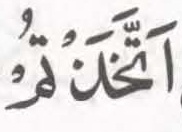 اَتَّخَذْتُمْ